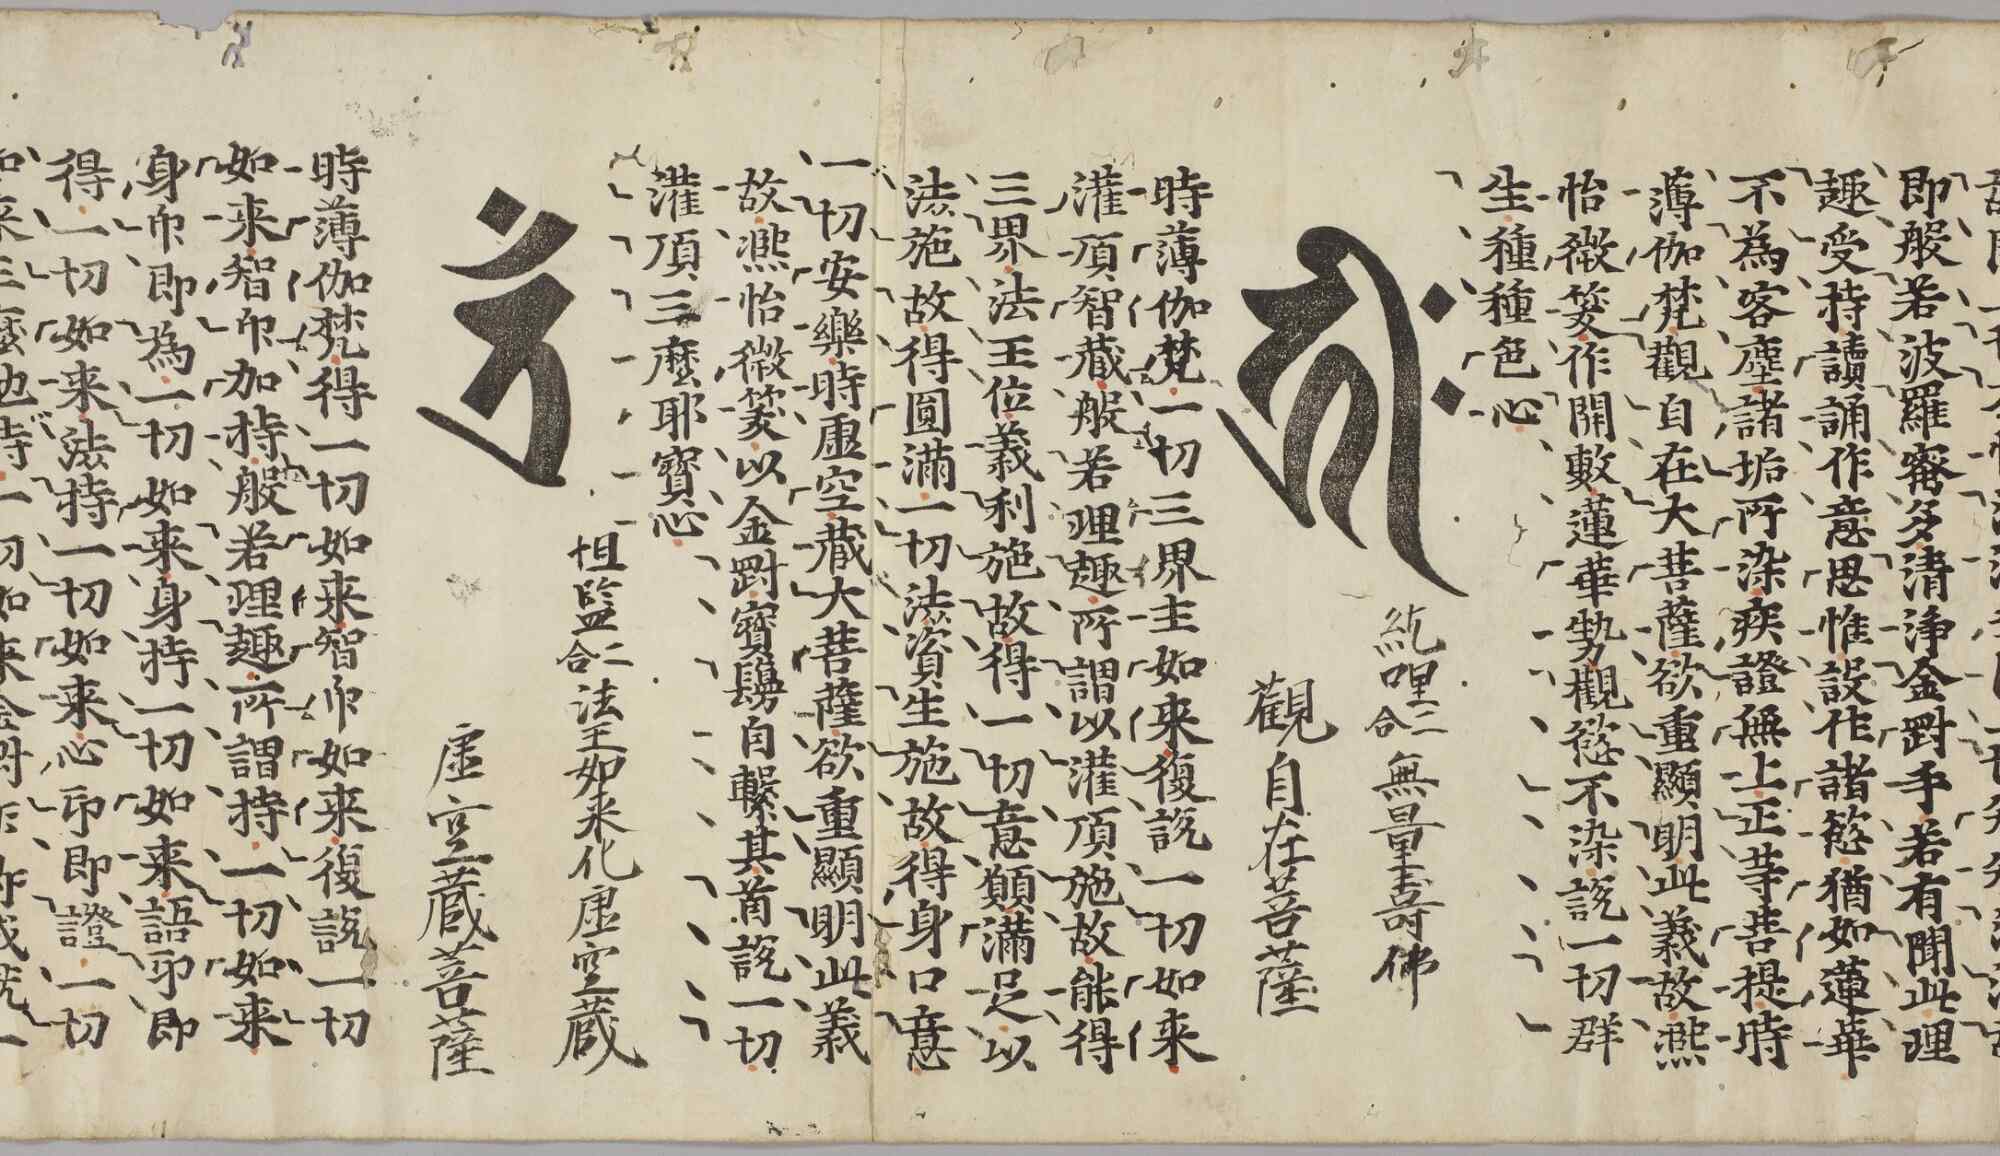 即般若波羅蜜多清淨金剛手若有聞此理
趣受持讀誦作意思惟設作諸慾猶如蓮華
不為客塵諸垢所染疾證無上正等菩提時
薄伽梵觀自在大菩薩欲重顯明此義故熙
怡微笑作開敷蓮華勢觀慾不染說一切群
生種種色心
𑖮𑖿𑖨𑖱𑖾
紇哩二合 無量壽佛
觀自在菩薩
時薄伽梵一切三界主如来復說一切如来
灌頂智藏般若理趣所謂以灌頂施故能得
三界法王位義利施故得一切意願滿足以
法施故得圓滿一切法資生施故得身口意
一切安樂時虛空藏大菩薩欲重顯明此義
故熙怡微笑以金剛寶鬘自繫其首說一切
灌頂三麼耶寶心
𑖝𑖿𑖨𑖽
怛㘕二合 法王如来化虛空藏
虛空蔵菩薩
時薄伽梵得一切如来智印如来復說一切
如来智印加持般若理趣所謂持一切如来
身印即為一切如来身持一切如来語印即
得一切如来法持一切如来心印即證一切